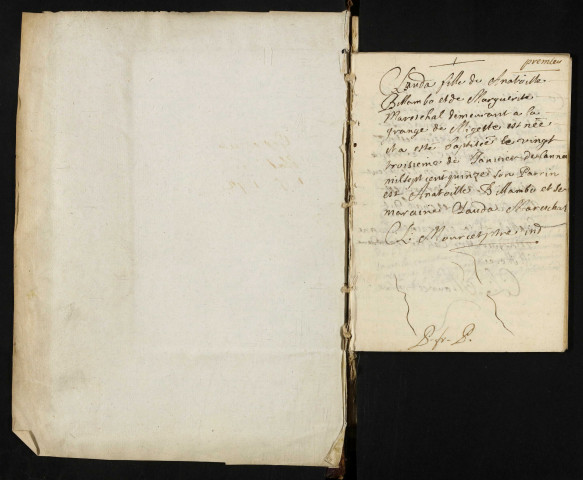 premier
Clauda fille de Anatoille
Billambo et de Marguerite
Mareschal demeurant a la
grange de Migette est née
et a esté baptisée le vingt
troisieme de Janvier de lannee
mil sept cent quinze son Parrin
est Anatoille Billambo et sa
maraine Clauda Mareschal